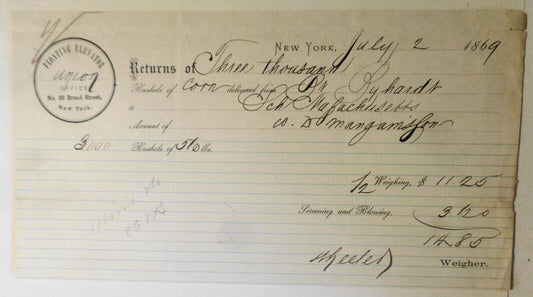 FLOATING ELEVATOR
Union
OFFICE
No. 22 Broad Street,
New York.
New York, July 2 1869
Returns of Three thousand
Bushels of Corn delivered from Bt Ryhardt
to Sch Massachusetts
Account of W. D. Mangam & Son
3000 Bushels of 56 lbs.
1/2 Weighing, $ 11.25
Screening and Blowing, 3.60
14.85
Wheeler Weigher.